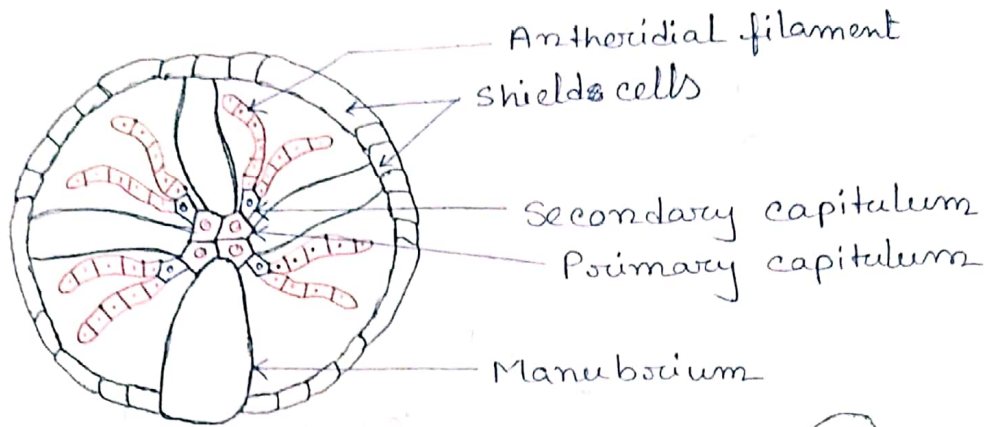 Antheridial filament
Shield cells
Secondary capitulum
Primary capitulum
Manubrium